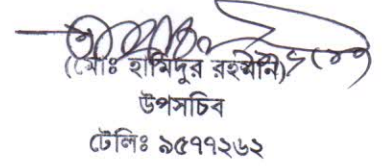 (মোঃ হামিদুর রহমান)
উপসচিব
টেলিঃ ৯৫৭৭২৬২